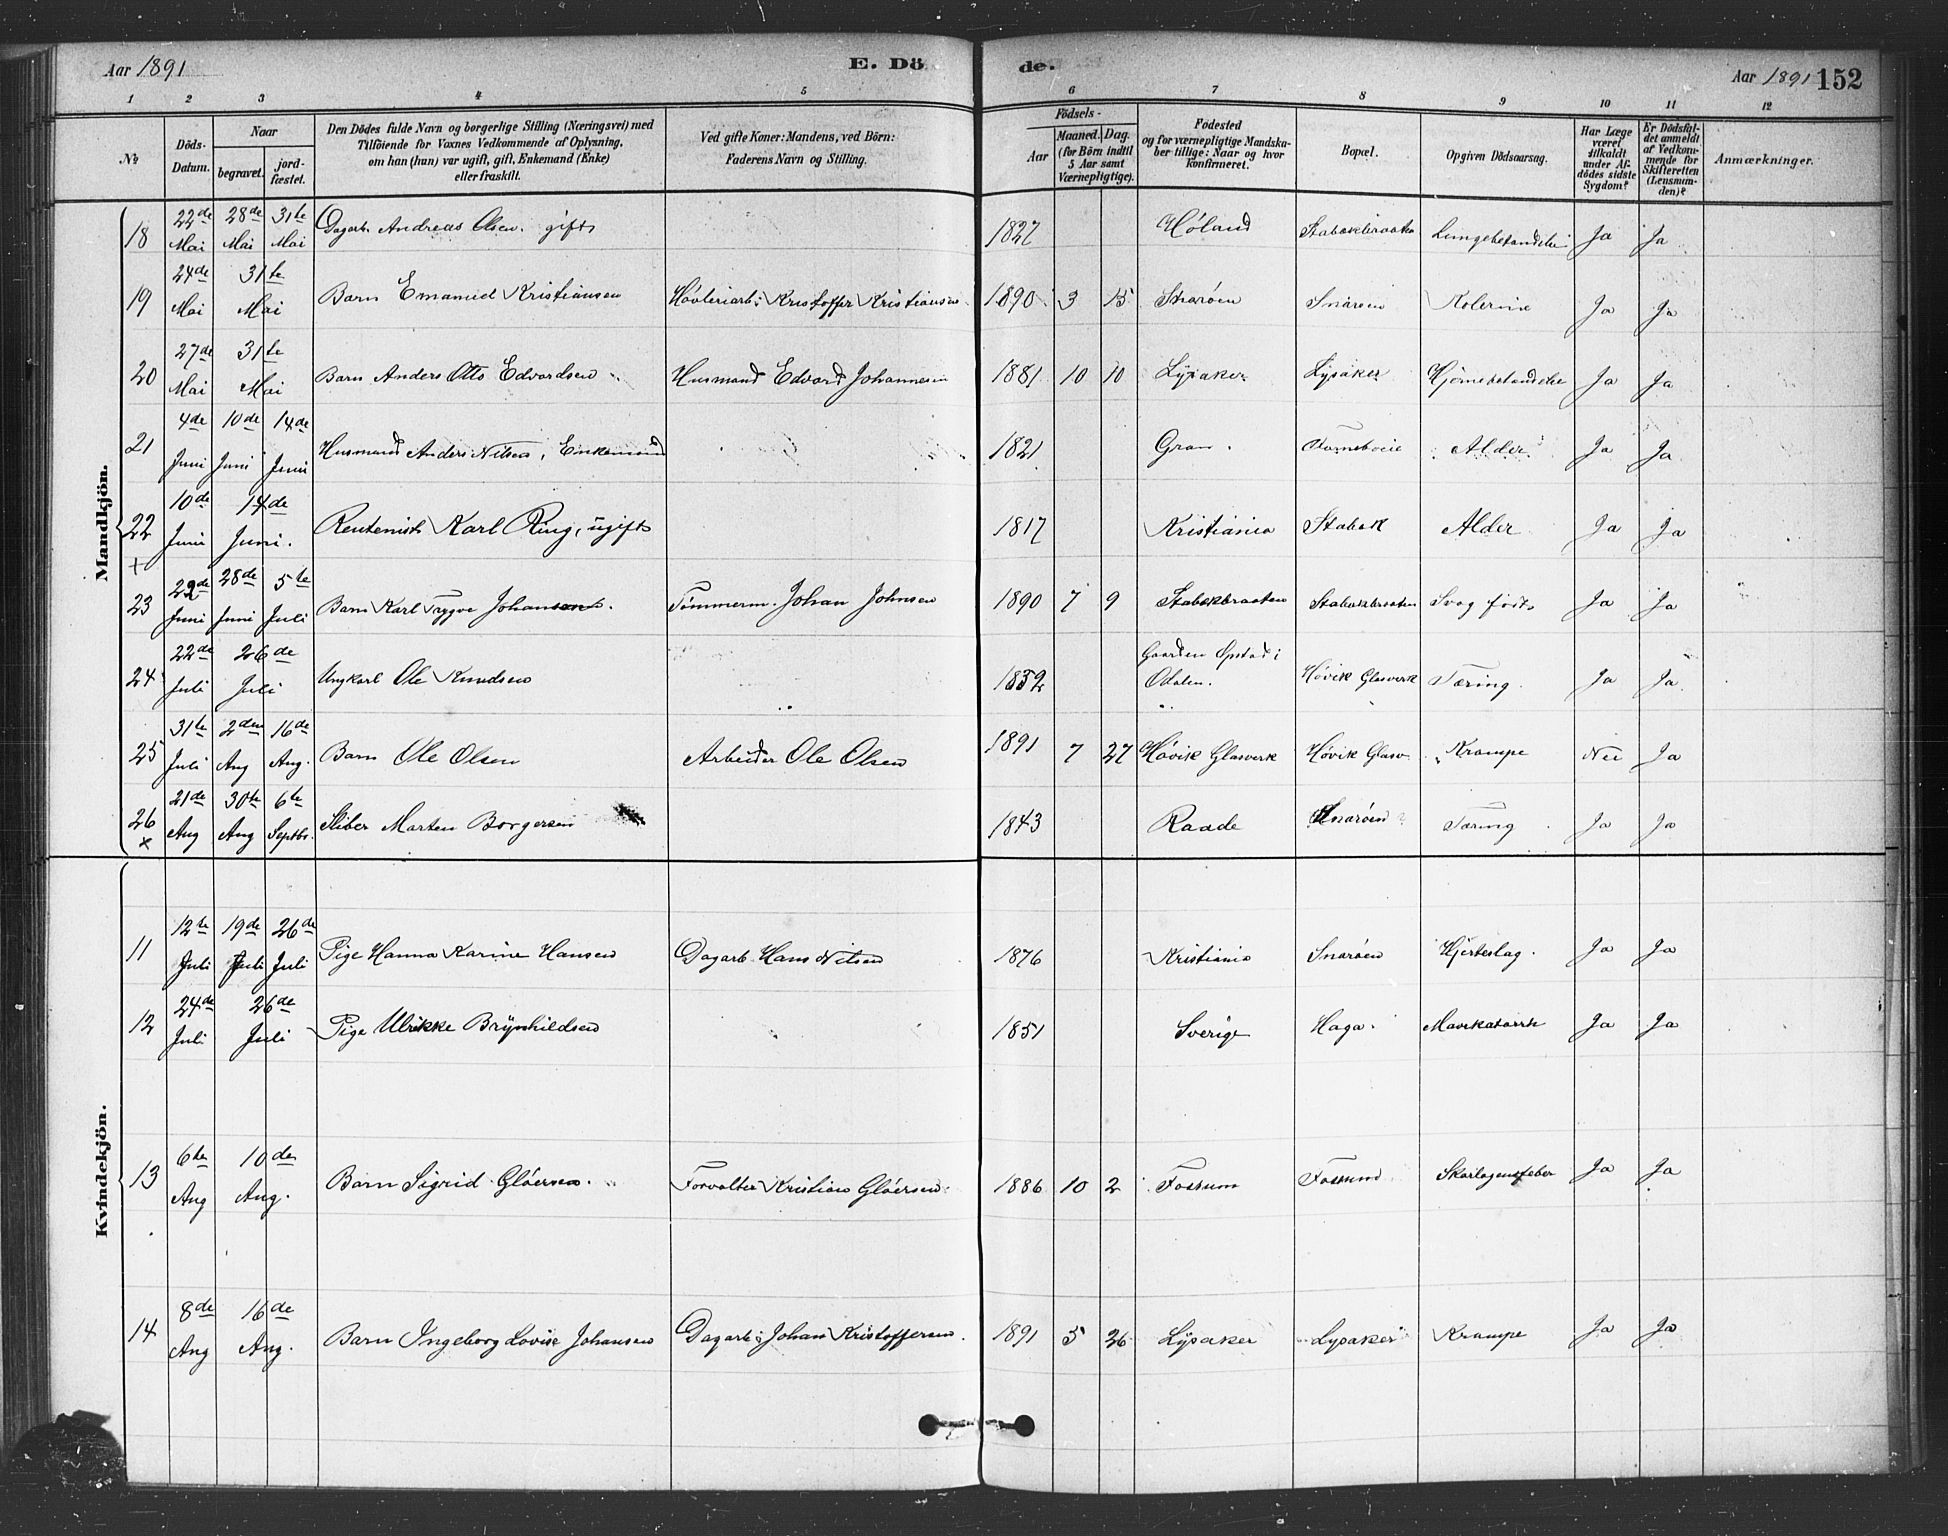 Aar 1891 E. Dö de. Aar 1891 152
1 2 3 4 5 6 7 8 9 10 11 12
No.
Döds-Datum.
Naar
begravet.
jordfæstet.
Den Dödes fulde Navn og borgerlige Stilling (Næringsvei) med
Tilföiende for Voxnes Vedkommende af Oplysning,
om han (hun) var ugift, gift, Enkemand (Enke)
eller fraskilt.
Ved gifte Koner: Mandens, ved Börn:
Faderens Navn og Stilling.
Födsels-
Aar
Maaned. Dag.
(for Börn indtil
5 Aar samt
Værnepligtige).
Födested
og for værnepligtige Mandska-
ber tillige: Naar og hvor
konfirmeret.
Bopæl.
Opgiven Dödsaarsag.
Har Læge
været
tilkaldt
under Af-
dödes sidste
Sygdom?
Er Dödsfal-
det anmeldt
af Vedkom-
mende for
Skifteretten
(Lensman-
den)?
Anmærkninger.
Mandkjön.
18 22de Mai 28de Mai 31te Mai Dagarb. Andreas Olsen. gift 1827 Höland Stabækbraaten Lungebetændelse Ja Ja
19 24de Mai 31te Mai Barn Emanuel Kristiansen Høvleriarb: Kristoffer Kristiansen 1890 3 15 Snaröen Snaröen Kolerine Ja Ja
20 27de Mai 31te Mai Barn Anders Otto Edvardsen Husmand Edvard Johannesen 1881 10 10 Lysaker Lysaker Hjernebetændelse Ja Ja
21 4de Juni 10de Juni 14de Juni Husmand Anders Nilsen, Enkemand 1821 Gran Alder Ja Ja
22 + 10de Juni 14de Juni. Rentenist Karl Ring, ugift 1817 Kristiania Stabæk Alder Ja Ja
23 22de Juni 28de Juni 5te Juli Barn Karl Trygve Johansen. Tømmerm. Johan Johnsen 1890 7 9 Stabækbraaten Stabækbraaten Svag født Ja Ja
24 22de Juli 26de Juli Ungkarl Ole Knudsen 1832 Gaarden Opstad i Odalen. Hövik Glasverk Tæring. Ja Ja
25 31te Juli 2den Aug 16de Aug. Barn Ole Olsen Arbeider Ole Olsen 1891 7 27 Hövik Glasverk Hövik Glasv Krampe Nei Ja
26 x 21de Aug 30te Aug 6te Septbr. Sliber Marten Borgersen 1843 Raade Snaröen Tæring Ja Ja
Kvindekjön.
11 12te Juli 19de Juli 26de Juli Pige Hanna Karine Hansen Dagarb. Hans Nilsen 1876 Kristiania Snaröen Hjerteslag. Ja Ja
12 24de Juli 26de Juli Pige Ulrikke Brynhildsen 1851 Sverige Haga Mavekatarrh Ja Ja
13 6te Aug 10de Aug. Barn Sigrid Glöersen. Forvalter Kristian Glöersen 1886 10 2 Fossum Fossum Skarlagensfeber Ja Ja
14 8de Aug 16de Aug. Barn Ingeborg Lovise Johansen Dagarb: Johan Kristoffersen. 1891 5 26 Lysaker Lysaker Krampe Ja Ja